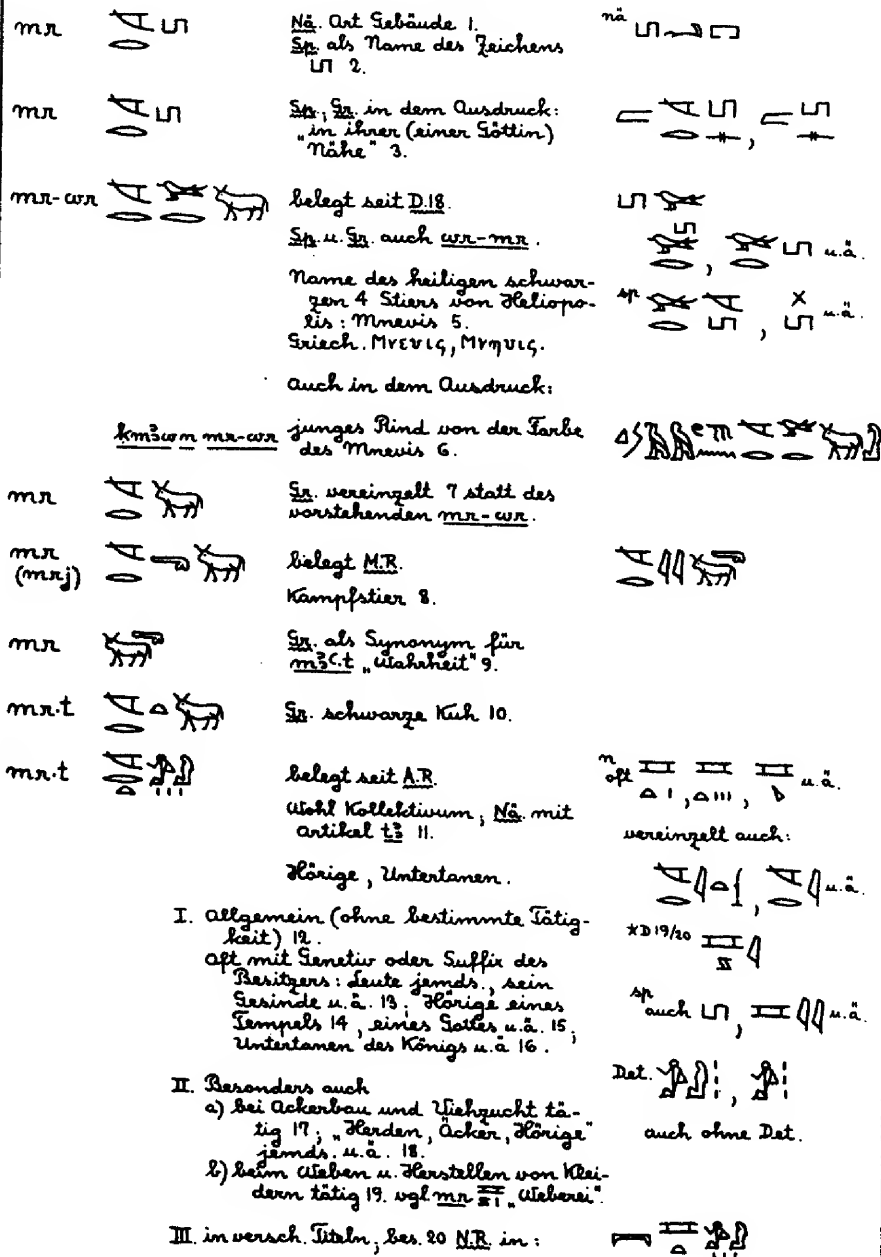 mr Nä. Art Gebäude 1. nä
Sp. als Name des Zeichens
2.
mr Sp., Gr. in dem Ausdruck:
„in ihrer (einer Göttin)
Nähe" 3.
mr-wr belegt seit D.18.
Sp. u. Gr. auch wr-mr. u.ä.
Name des heiligen schwar-
zen 4 Stiers von Heliopo- sp
lis: Mnevis 5. u.ä.
Griech. Μνευις, Μνηυις.
Auch in dem Ausdruck:
km³w n mr-wr junges Rind von der Farbe
des Mnevis 6.
mr Gr. vereinzelt 7 statt des
vorstehenden mr-wr.
mr belegt M.R.
(mrj) Kampfstier 8.
mr Gr. als Synonym für
m³ꜥ.t „Wahrheit" 9.
mr.t Gr. schwarze Kuh 10.
mr.t belegt seit A.R. n oft u.ä.
Wohl Kollektivum; Nä. mit
Artikel t³ 11. vereinzelt auch:
Hörige, Untertanen. u.ä.
I. Allgemein (ohne bestimmte Tätig-
keit) 12. *D 19/20
Oft mit Genetiv oder Suffix des
Besitzers: Leute jemds., sein
Gesinde u.ä. 13; Hörige eines sp auch u.ä.
Tempels 14, eines Gottes u.ä. 15;
Untertanen des Königs u.ä 16.
II. Besonders auch Det.
a) bei Ackerbau und Viehzucht tä-
tig 17; „Herden, Äcker, Hörige" auch ohne Det.
jemds. u.ä. 18.
b) beim Weben u. Herstellen von Klei-
dern tätig 19. vgl mr „Weberei".
III. in versch. Titeln; bes. 20 N.R. in: